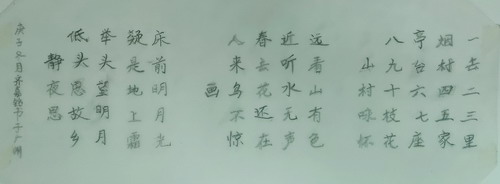 一去二三里
烟村四五家
亭台六七座
八九十枝花
山村咏怀
远看山有色
近听水无声
春去花还在
人来鸟不惊
画
床前明月光
疑是地上霜
举头望明月
低头思故乡
静夜思
庚子